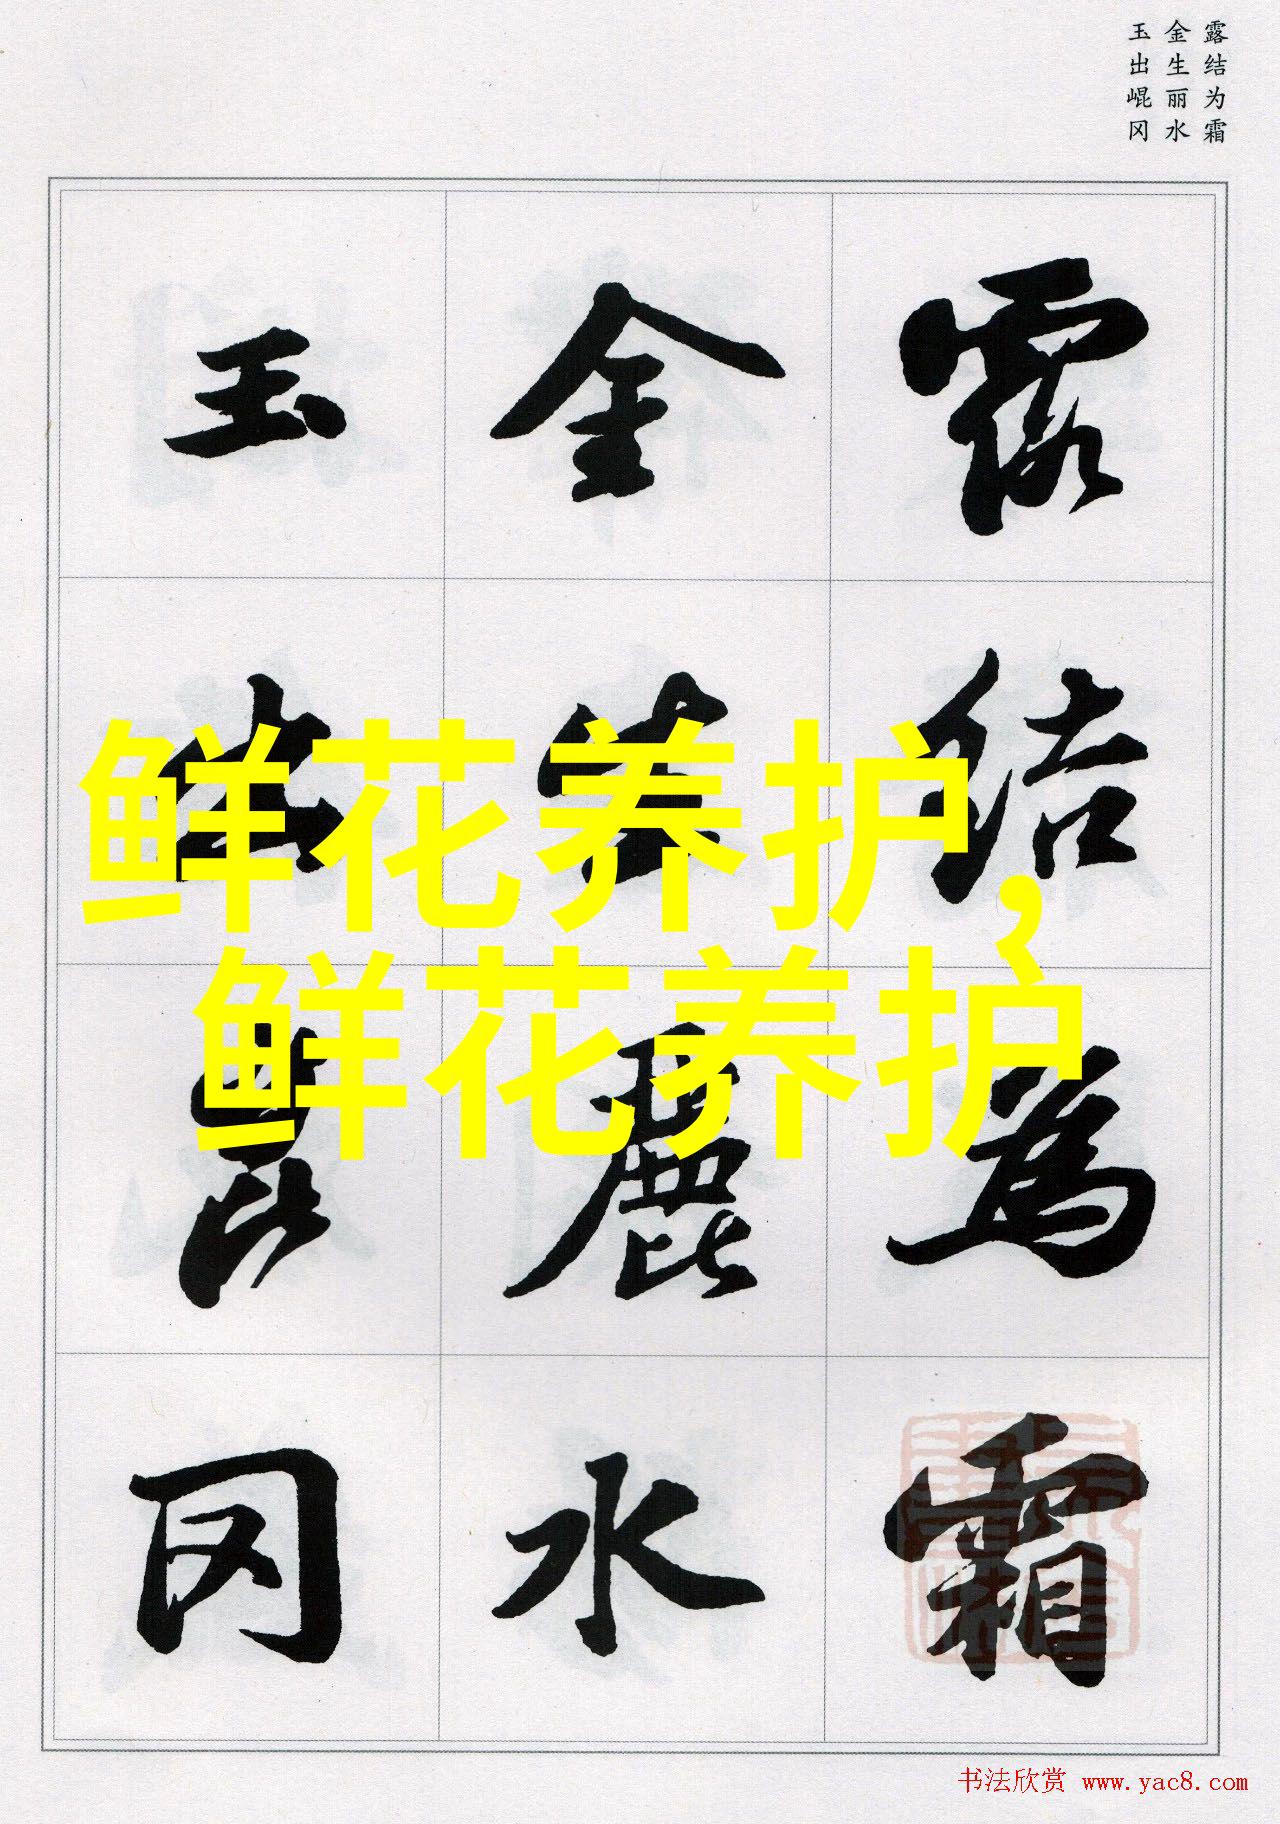 露结为霜
金生丽水
玉出崐冈
露結為霜
金生麗水
玉出崑冈
鲜花养护,
鲜花养护
书法欣赏 www.yac8.com